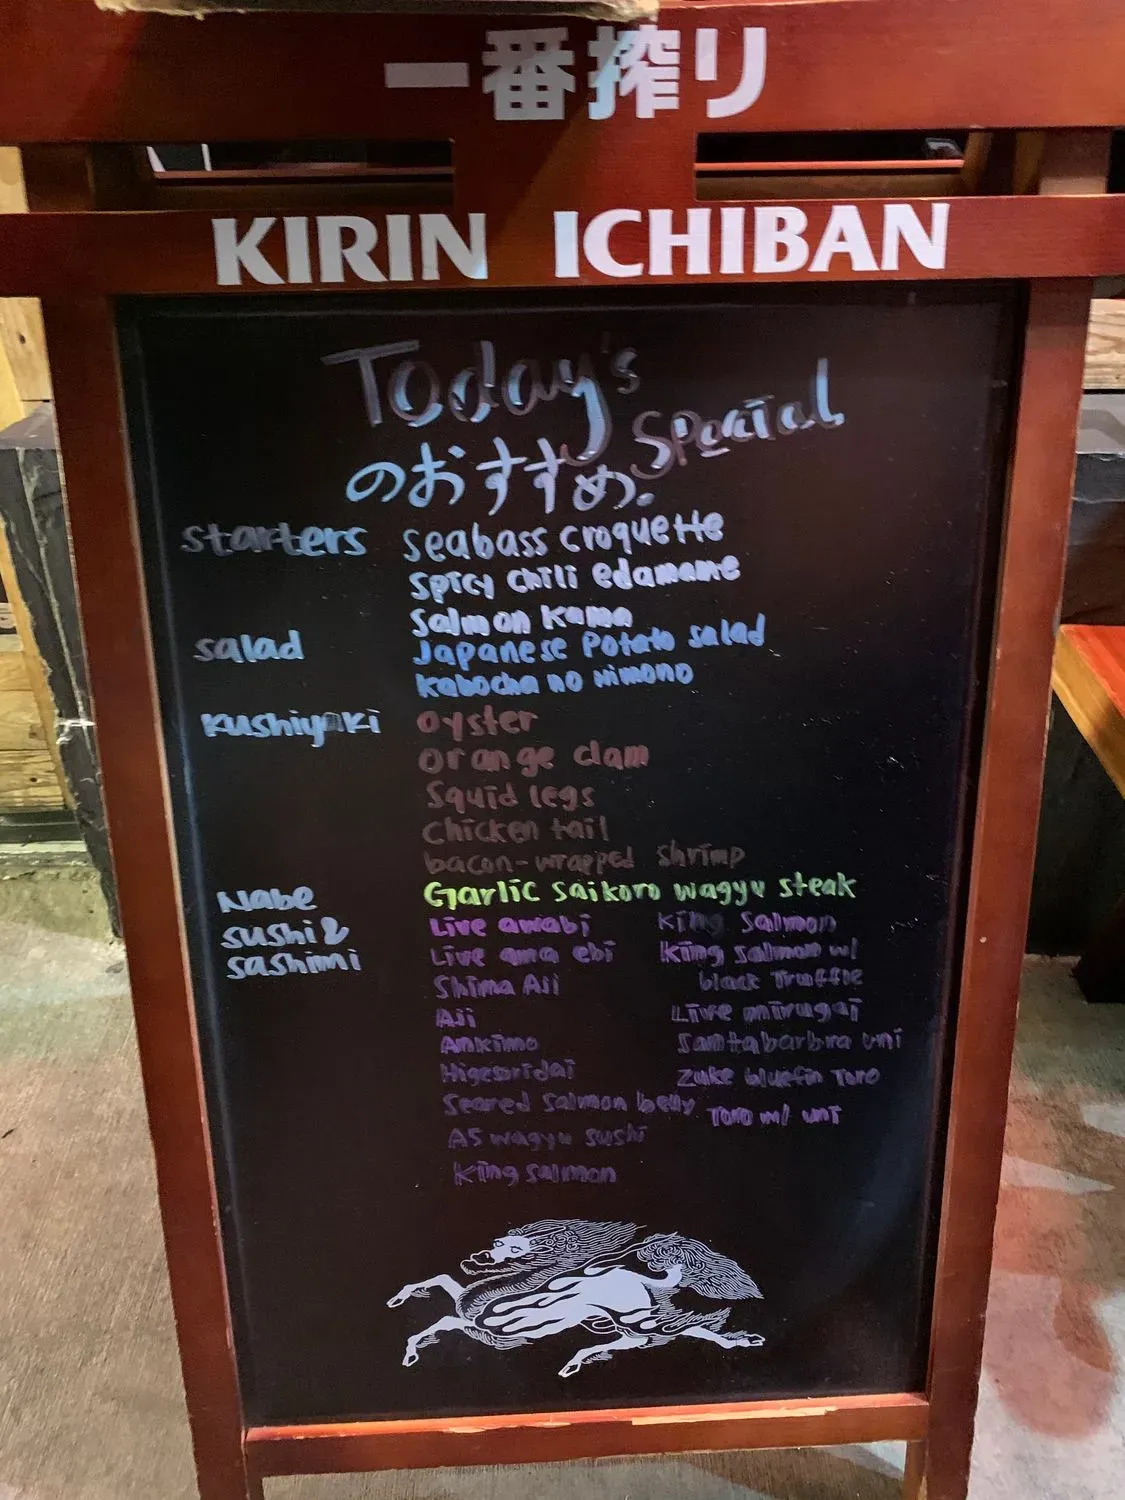 一番搾り
KIRIN ICHIBAN
Today's
Special
のおすすめ。
starters seabass croquette
spicy chili edamame
Salmon Kama
salad Japanese Potato salad
Kabocha no Nimono
Kushiyaki oyster
orange clam
Squid legs
Chicken tail
bacon-wrapped shrimp
Nabe Garlic saikoro wagyu steak
sushi & Live awabi King Salmon
sashimi Live ama ebi King Salmon w/
Shima Aji black Truffle
Aji Live mirugai
Ankimo Santa barbra uni
Zuke bluefin Toro
Seared Salmon belly Toro w/ uni
A5 wagyu sushi
King salmon